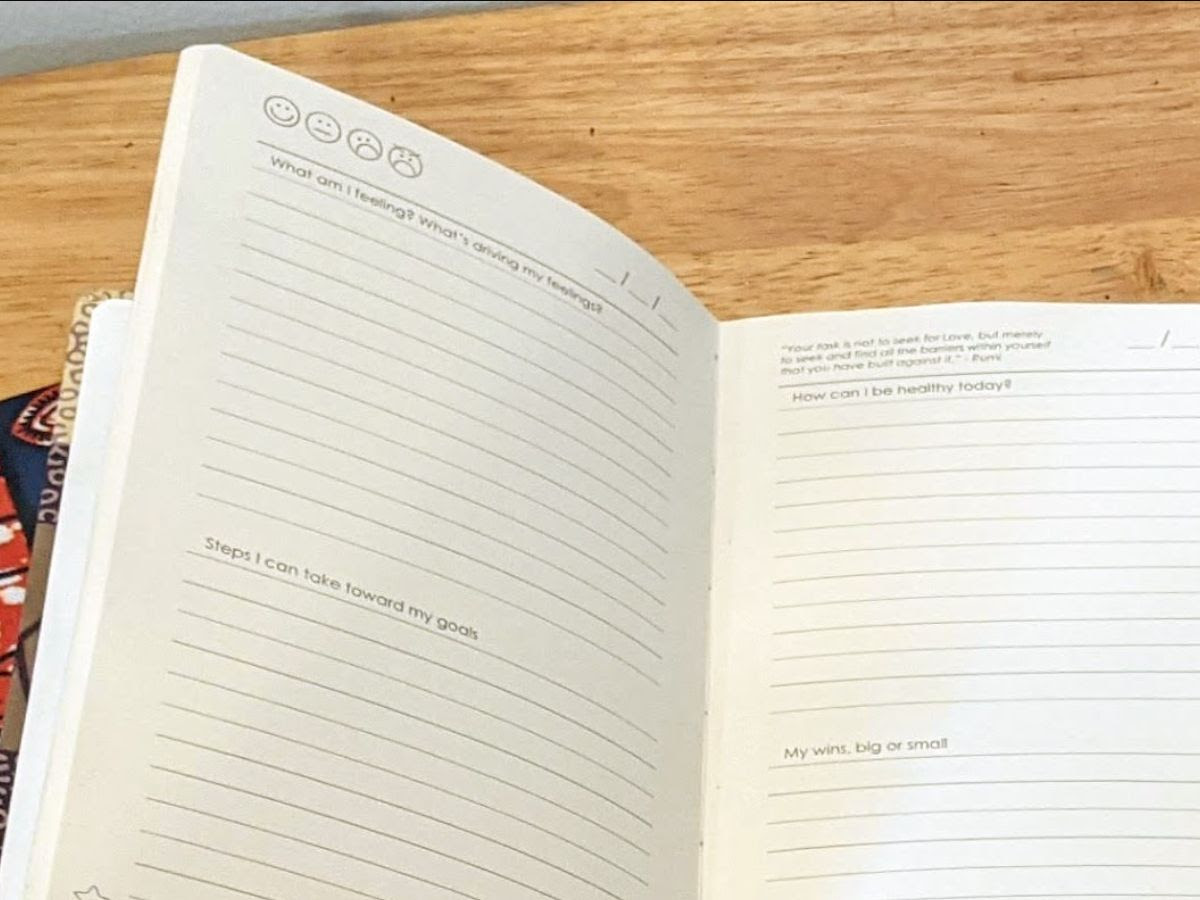 What am I feeling? What's driving my feelings?
__/__/__
Steps I can take toward my goals
"Your task is not to seek for Love, but merely
to seek and find all the barriers within yourself
that you have built against it." - Rumi
__/__
How can I be healthy today?
My wins, big or small